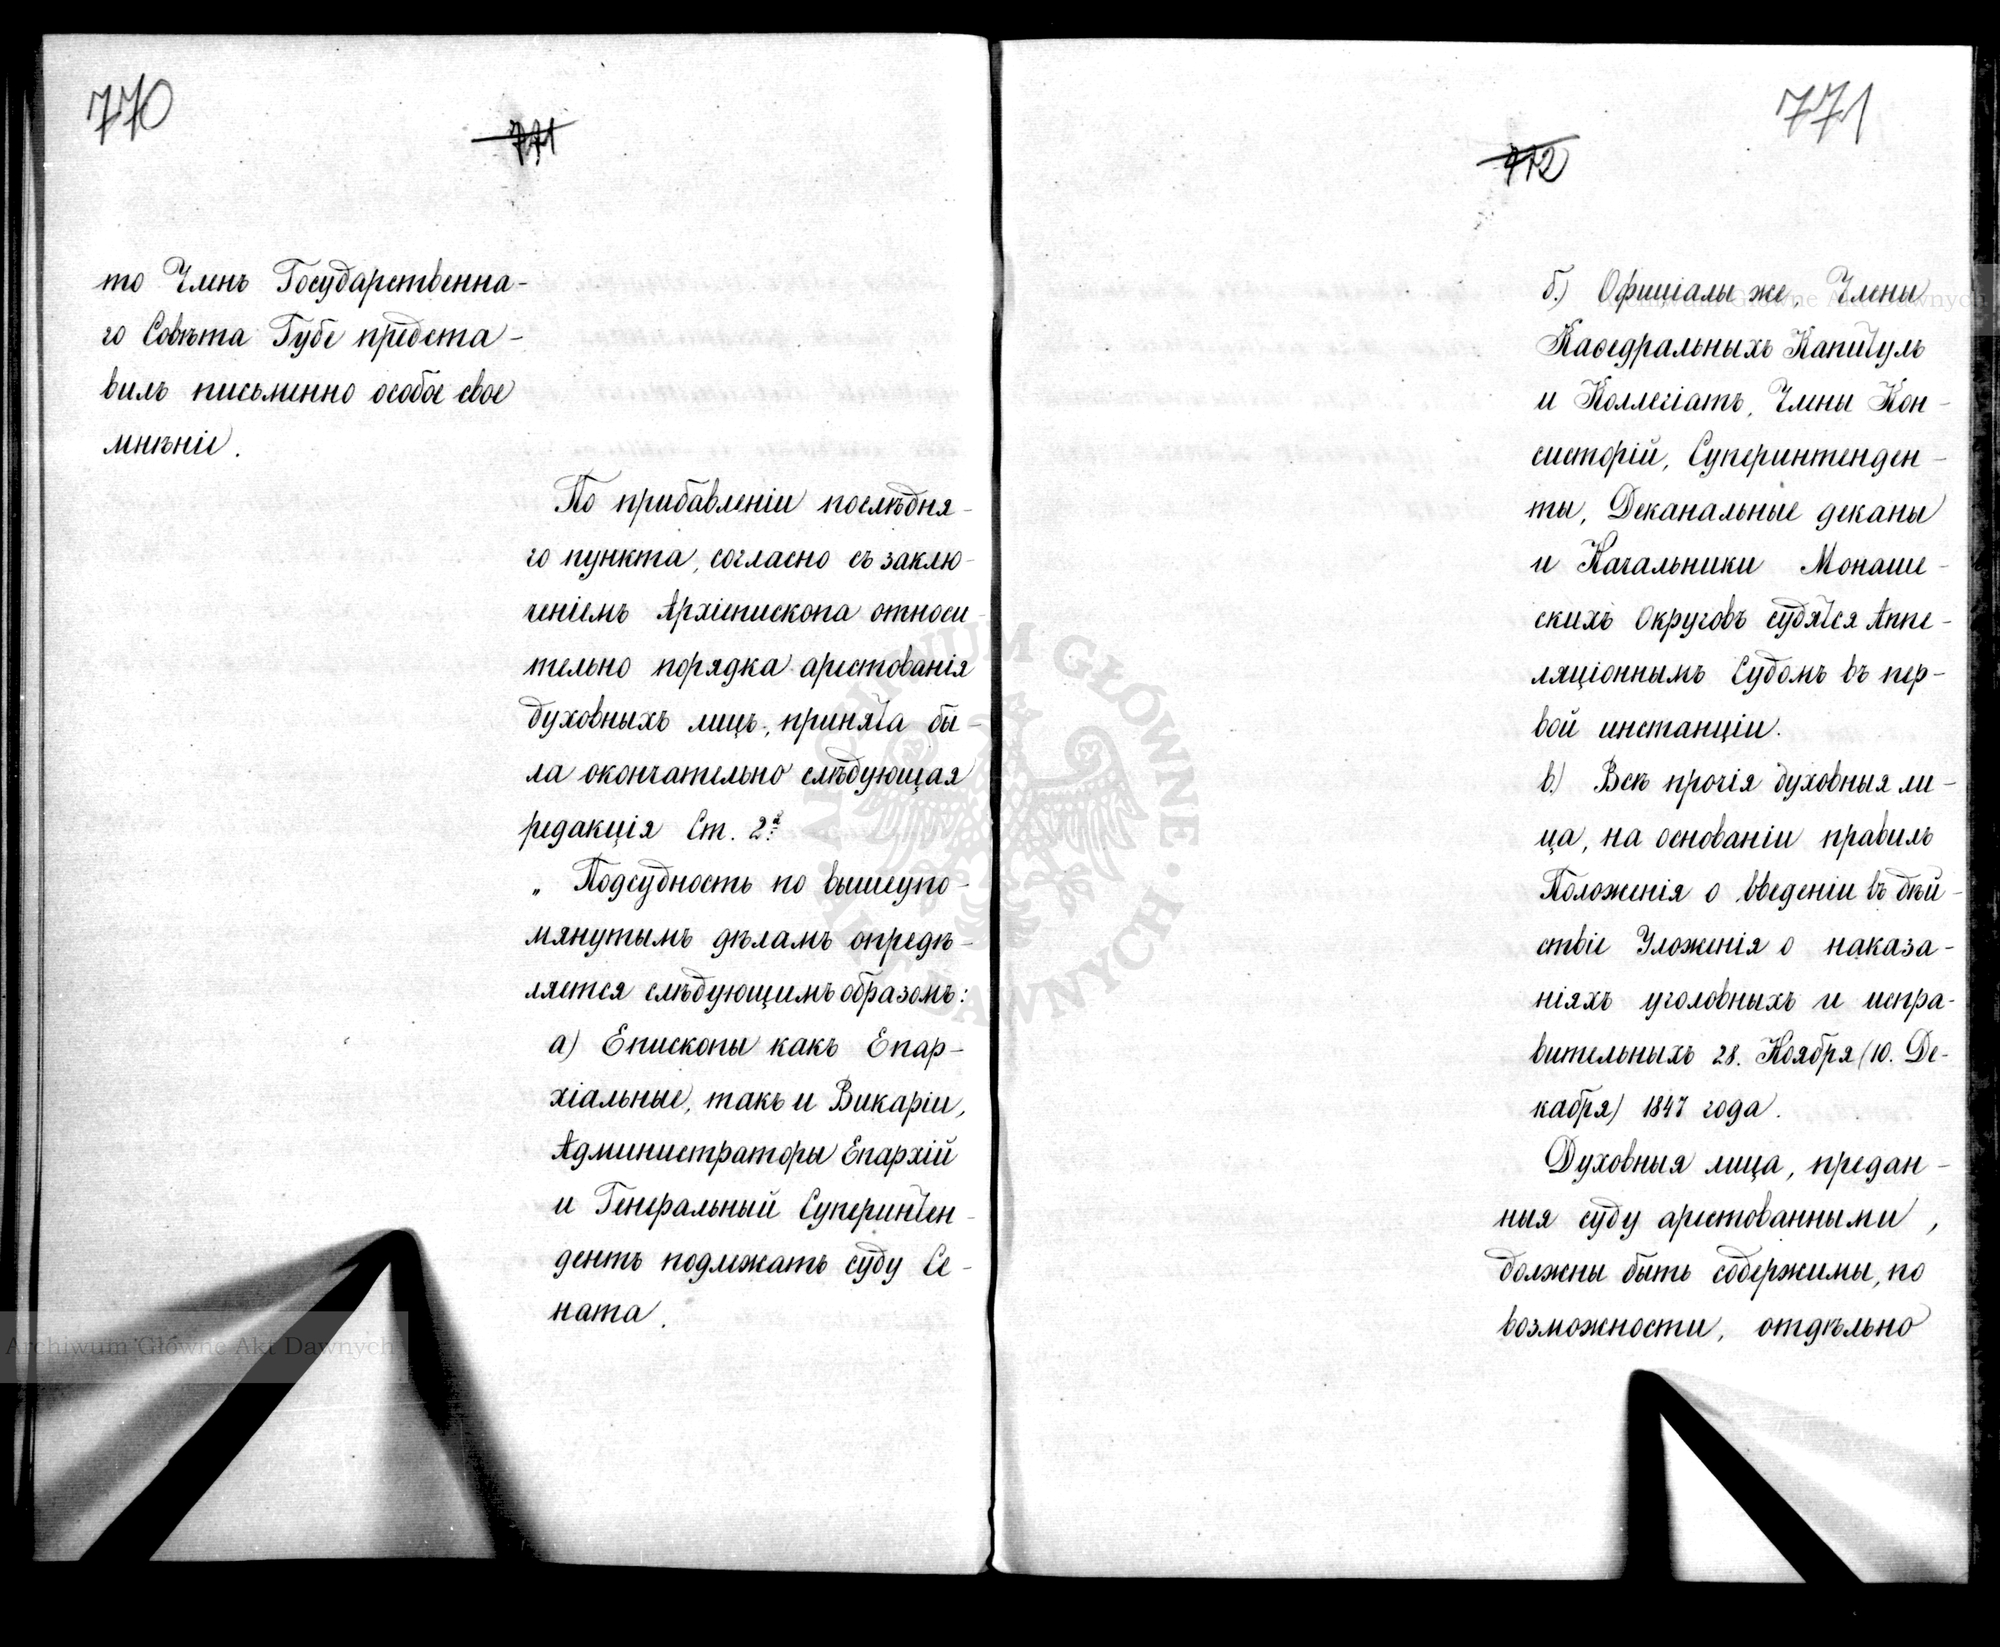 770
771
то Членъ Государственна-
го Совѣта Губе предста-
вилъ письменно особое свое
мнѣніе.
По прибавленіи послѣдня-
го пункта, согласно съ заклю-
ченіемъ Архіепископа относи-
тельно порядка арестованія
духовныхъ лицъ, принята бы-
ла окончательно слѣдующая
редакція Ст. 2й
„Подсудность по вышеупо-
мянутымъ дѣламъ опредѣ-
ляется слѣдующимъ образомъ:
а) Епископы какъ Епар-
хіальные, такъ и Викаріи,
Администраторы Епархій
и Генеральный Суперинтен-
дентъ подлежатъ суду Се-
ната.
771
772
б.) Офиціалы же, Члены
Каѳедральныхъ Капитулъ
и Коллегіатъ, Члены Кон-
систорій, Суперинтенден-
ты, Деканальные деканы
и Начальники Монаше-
скихъ Округовъ судятся Аппе-
ляціоннымъ Судомъ въ пер-
вой инстанціи.
в.) Всѣ прочія духовныя ли-
ца, на основаніи правилъ
Положенія о введеніи въ дѣй-
ствіе Уложенія о наказа-
ніяхъ уголовныхъ и испра-
вительныхъ 28. Ноября (10. Де-
кабря) 1847 года.
Духовныя лица, предан-
ныя суду арестованными,
должны быть содержимы, по
возможности, отдѣльно
Archiwum Główne Akt Dawnych
Archiwum Główne Akt Dawnych
ARCHIWUM GŁÓWNE AKT DAWNYCH